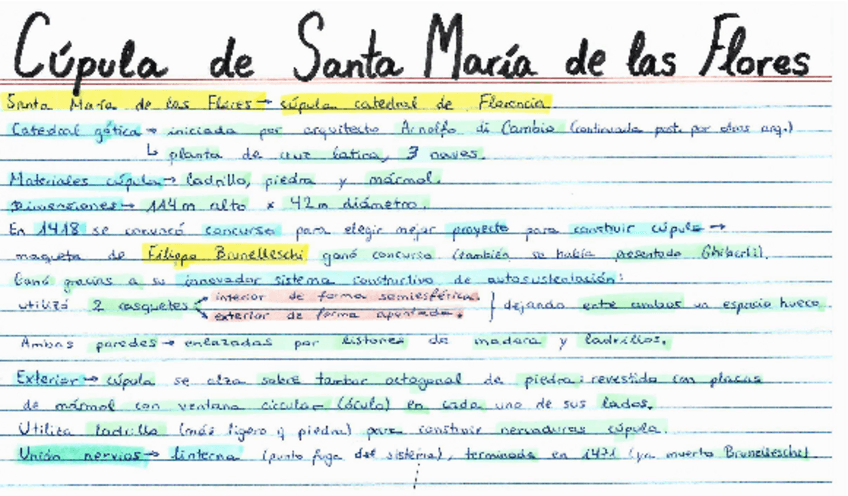 Cúpula de Santa María de las Flores
Santa María de las Flores → cúpula catedral de Florencia
Catedral gótica → iniciada por arquitecto Arnolfo di Cambio (continuada post. por otros arq.)
↳ planta de cruz latina, 3 naves.
Materiales cúpula → ladrillo, piedra y mármol.
Dimensiones → 114m alto × 42m diámetro.
En 1418 se convocó concurso para elegir mejor proyecto para construir cúpula →
maqueta de Filippo Brunelleschi ganó concurso (también se había presentado Ghiberti).
Ganó gracias a su innovador sistema constructivo de autosustentación:
utilizó 2 casquetes interior de forma semiesférica. dejando entre ambos un espacio hueco.
exterior de forma apuntada.
Ambas paredes → enlazadas por listones de madera y ladrillos.
Exterior → cúpula se alza sobre tambor octogonal de piedra: revestido con placas
de mármol con ventana circular (óculo) en cada uno de sus lados.
Utiliza ladrillo (más ligero q piedra) para construir nervaduras cúpula.
Unión nervios → linterna (punto fuga del sistema), terminada en 1471 (ya muerto Brunelleschi)